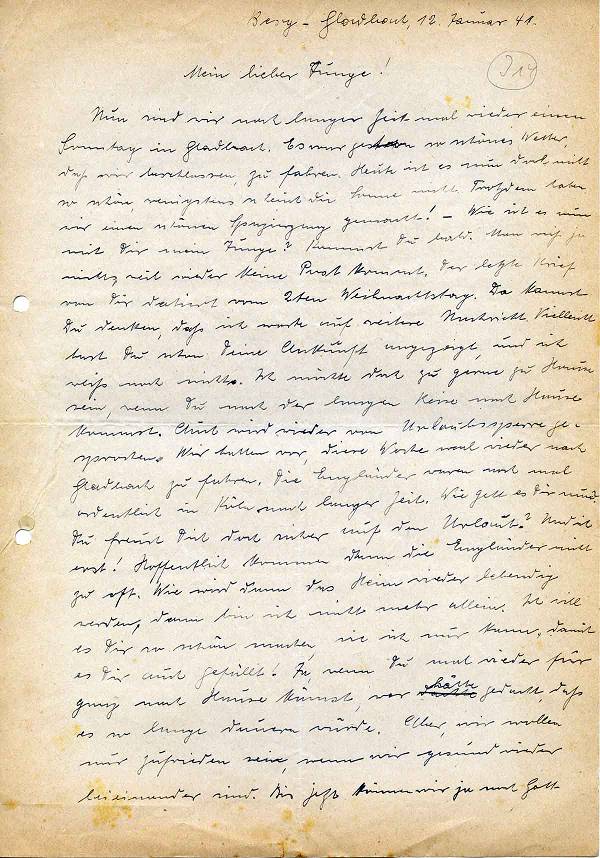 Berg-Gladbach, 12. Januar 41.
314
Mein lieber Junge!
Nun sind wir nach langer Zeit mal wieder einen
Sonntag in Gladbach. Es war gestern so schönes Wetter,
daß wir beschlossen, zu fahren. Heute ist es nun doch nicht
so schön, wenigstens scheint die Sonne nicht. Trotzdem haben
wir einen schönen Spaziergang gemacht! – Wie ist es nun
mit Dir mein Junge? Kommst Du bald. Man weiß ja
nichts, weil wieder keine Post kommt. Der letzte Brief
von Dir datiert vom 2ten Weihnachtstag. Da kannst
Du denken, daß ich warte auf weitere Nachricht. Vielleicht
hast Du schon Deine Ankunft angezeigt, und ich
weiß noch nichts. Ich möchte doch zu gerne zu Hause
sein, wenn Du nach der langen Reise nach Hause
kommst. Auch wird wieder von Urlaubssperre ge-
sprochen. Wir hatten vor, diese Woche mal wieder nach
Gladbach zu fahren. Die Engländer waren noch mal
ordentlich in Köln nach langer Zeit. Wie geht es Dir nun.
Du freust Dich doch sicher auf den Urlaub? Und ich
erst! Hoffentlich kommen dann die Engländer nicht
zu oft. Wie wird dann das Heim wieder lebendig
werden, dann bin ich nicht mehr allein. Ich will
es Dir so schön machen, wie ich nur kann, damit
es Dir auch gefällt! Ja, wenn Du mal wieder für
ganz nach Hause kämst, wer hätte gedacht, daß
es so lange dauern würde. Aber, wir wollen
nur zufrieden sein, wenn wir gesund wieder
beieinander sind. Bis jetzt können wir ja noch Gott